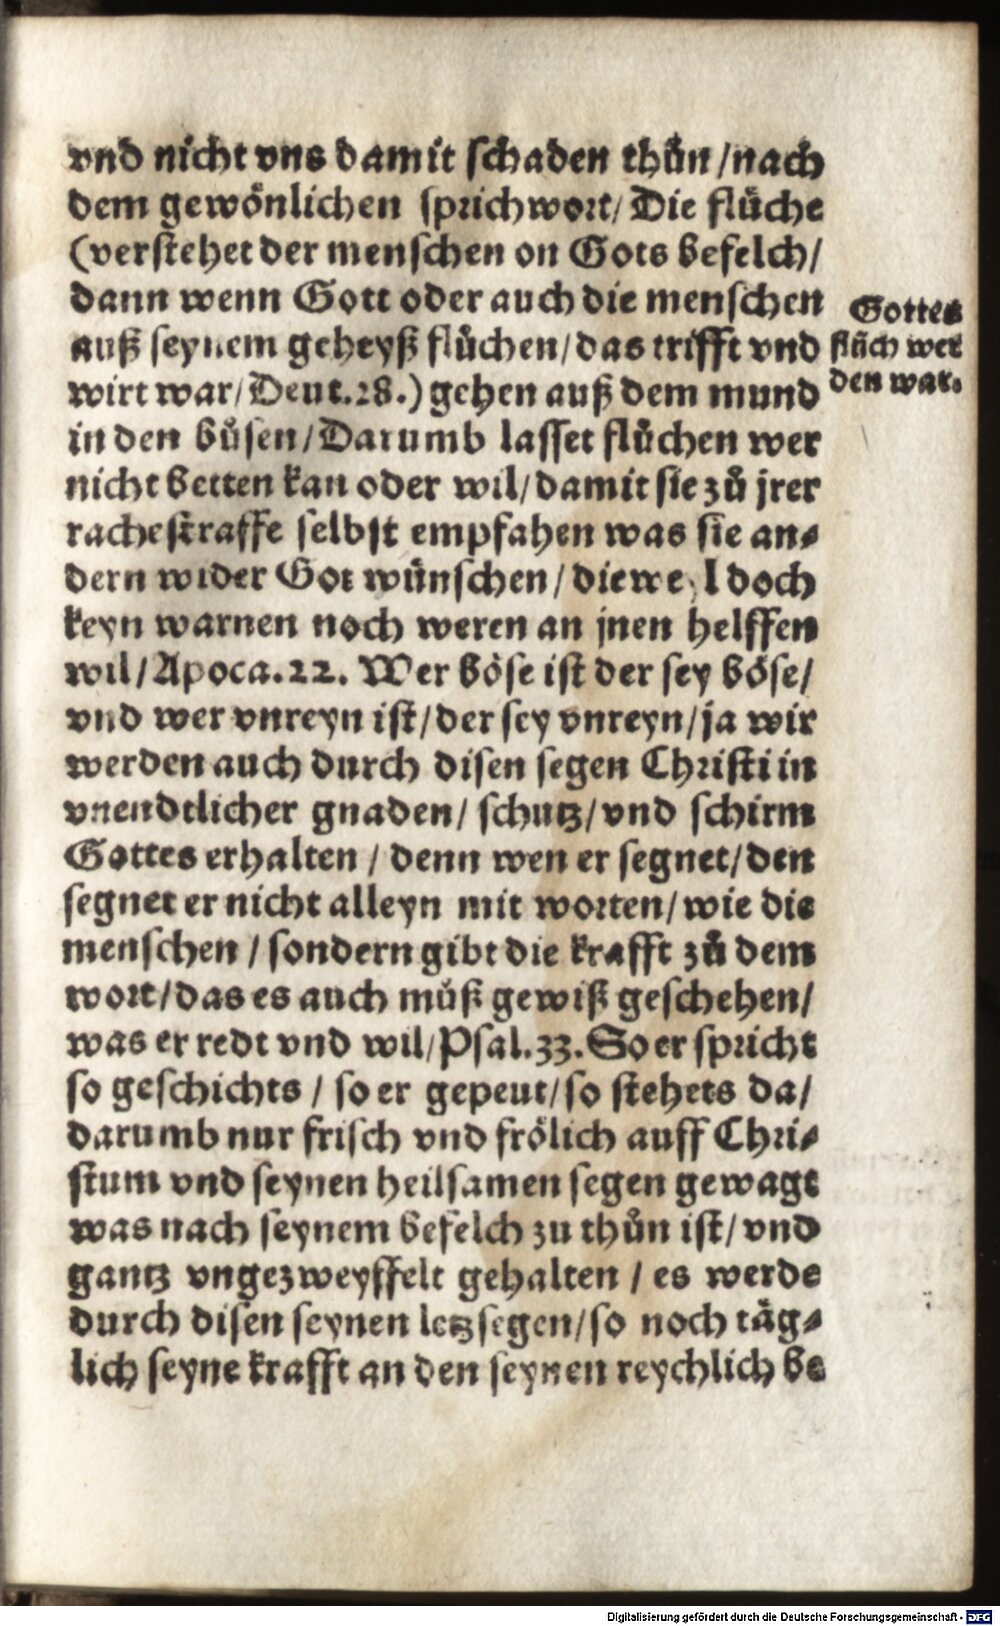 vnd nicht vns damit schaden thůn/nach
dem gewönlichen sprichwort/Die flüche
(verstehet der menschen on Gots befelch/
dann wenn Gott oder auch die menschen
auß seynem geheyß flůchen/das trifft vnd
wirt war/Deut.28.) gehen auß dem mund
in den bůsen/Darumb lasset flůchen wer
nicht betten kan oder wil/damit sie zů jrer
rachestraffe selbst empfahen was sie an⸗
dern wider Got wünschen/dieweyl doch
keyn warnen noch weren an jnen helffen
wil/Apoca.22. Wer böse ist der sey böse/
vnd wer vnreyn ist/der sey vnreyn/ja wir
werden auch durch disen segen Christi in
vnendtlicher gnaden/schutz/vnd schirm
Gottes erhalten/denn wen er segnet/den
segnet er nicht alleyn mit worten/wie die
menschen/sondern gibt die krafft zů dem
wort/das es auch můß gewiß geschehen/
was er redt vnd wil/Psal.33.So er spricht
so geschichts/so er gepeut/so stehets da/
darumb nur frisch vnd frölich auff Chri⸗
stum vnd seynen heilsamen segen gewagt
was nach seynem befelch zu thůn ist/vnd
gantz vngezweyffelt gehalten/es werde
durch disen seynen letzsegen/so noch täg⸗
lich seyne krafft an den seynen reychlich be
Gottes
flüch wer
den war.
Digitalisierung gefördert durch die Deutsche Forschungsgemeinschaft - DFG